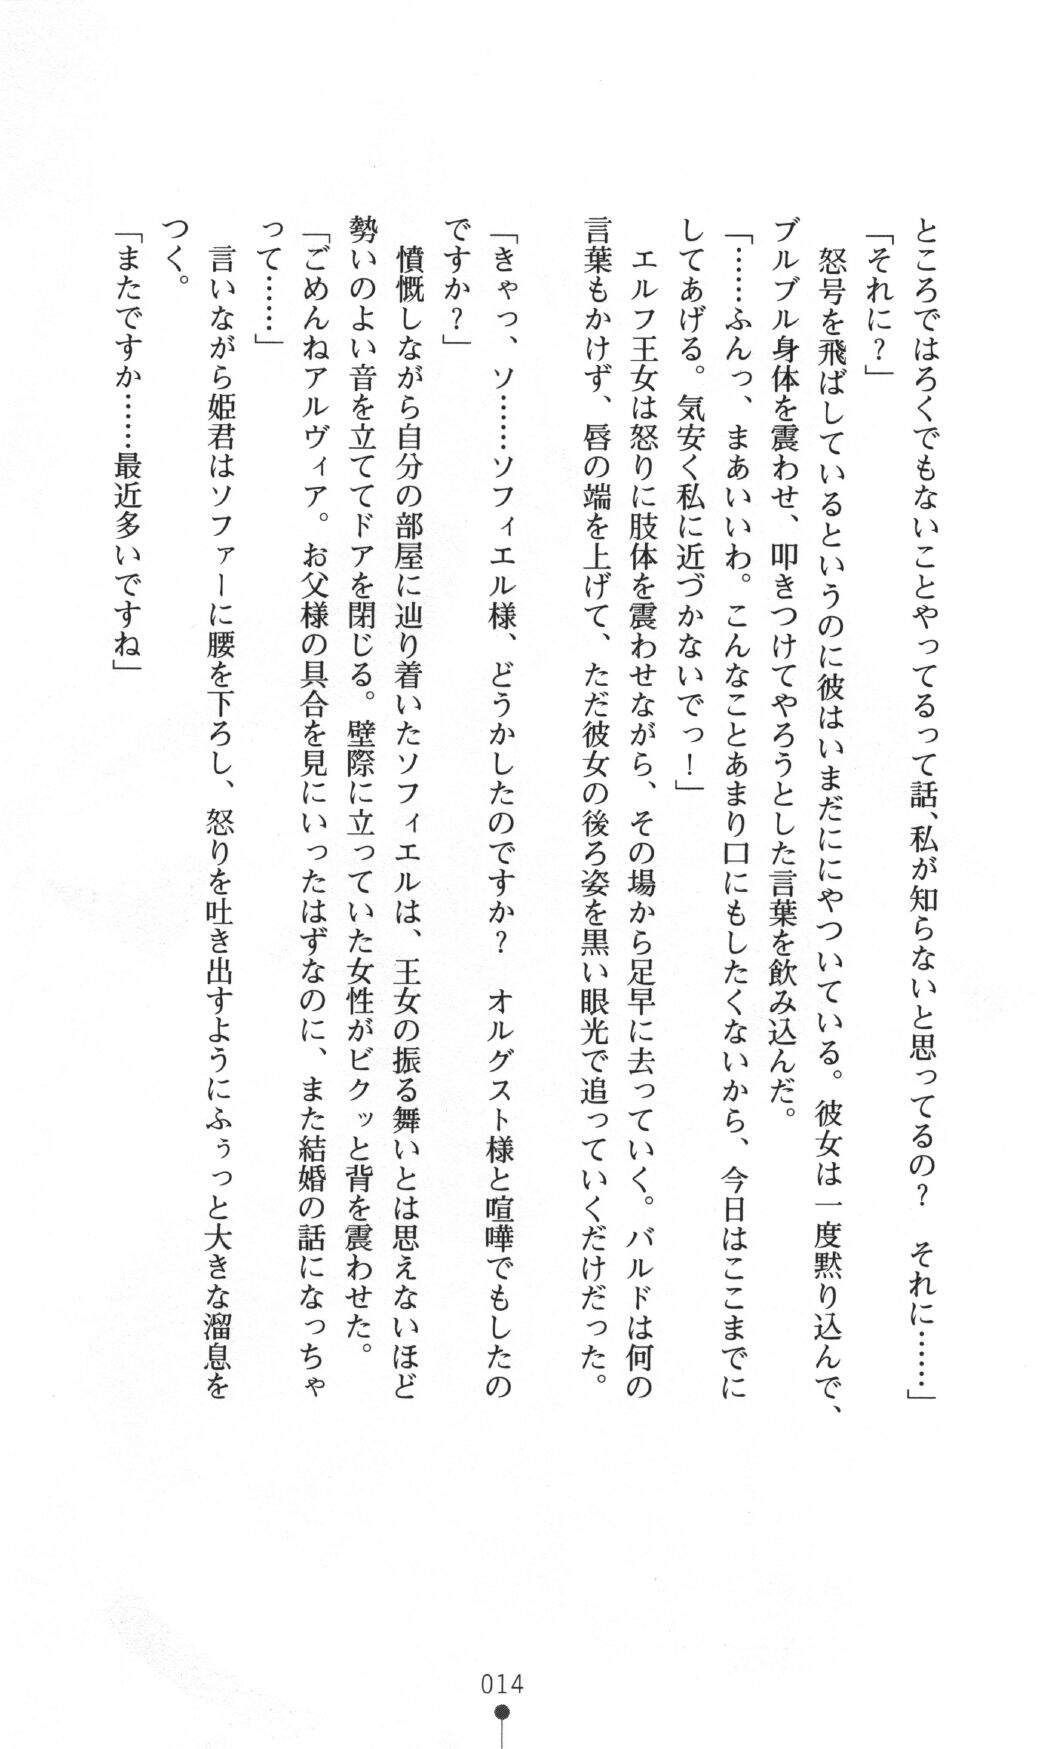 ところではろくでもないことやってるって話、私が知らないと思ってるの？　それに……」
「それに？」
　怒号を飛ばしているというのに彼はいまだににやついている。彼女は一度黙り込んで、
ブルブル身体を震わせ、叩きつけてやろうとした言葉を飲み込んだ。
「……ふんっ、まあいいわ。こんなことあまり口にもしたくないから、今日はここまでに
してあげる。気安く私に近づかないでっ！」
　エルフ王女は怒りに肢体を震わせながら、その場から足早に去っていく。バルドは何の
言葉もかけず、唇の端を上げて、ただ彼女の後ろ姿を黒い眼光で追っていくだけだった。
「きゃっ、ソ……ソフィエル様、どうかしたのですか？　オルグスト様と喧嘩でもしたの
ですか？」
　憤慨しながら自分の部屋に辿り着いたソフィエルは、王女の振る舞いとは思えないほど
勢いのよい音を立ててドアを閉じる。壁際に立っていた女性がビクッと背を震わせた。
「ごめんねアルヴィア。お父様の具合を見にいったはずなのに、また結婚の話になっちゃ
って……」
　言いながら姫君はソファーに腰を下ろし、怒りを吐き出すようにふぅっと大きな溜息を
つく。
「またですか……最近多いですね」
014